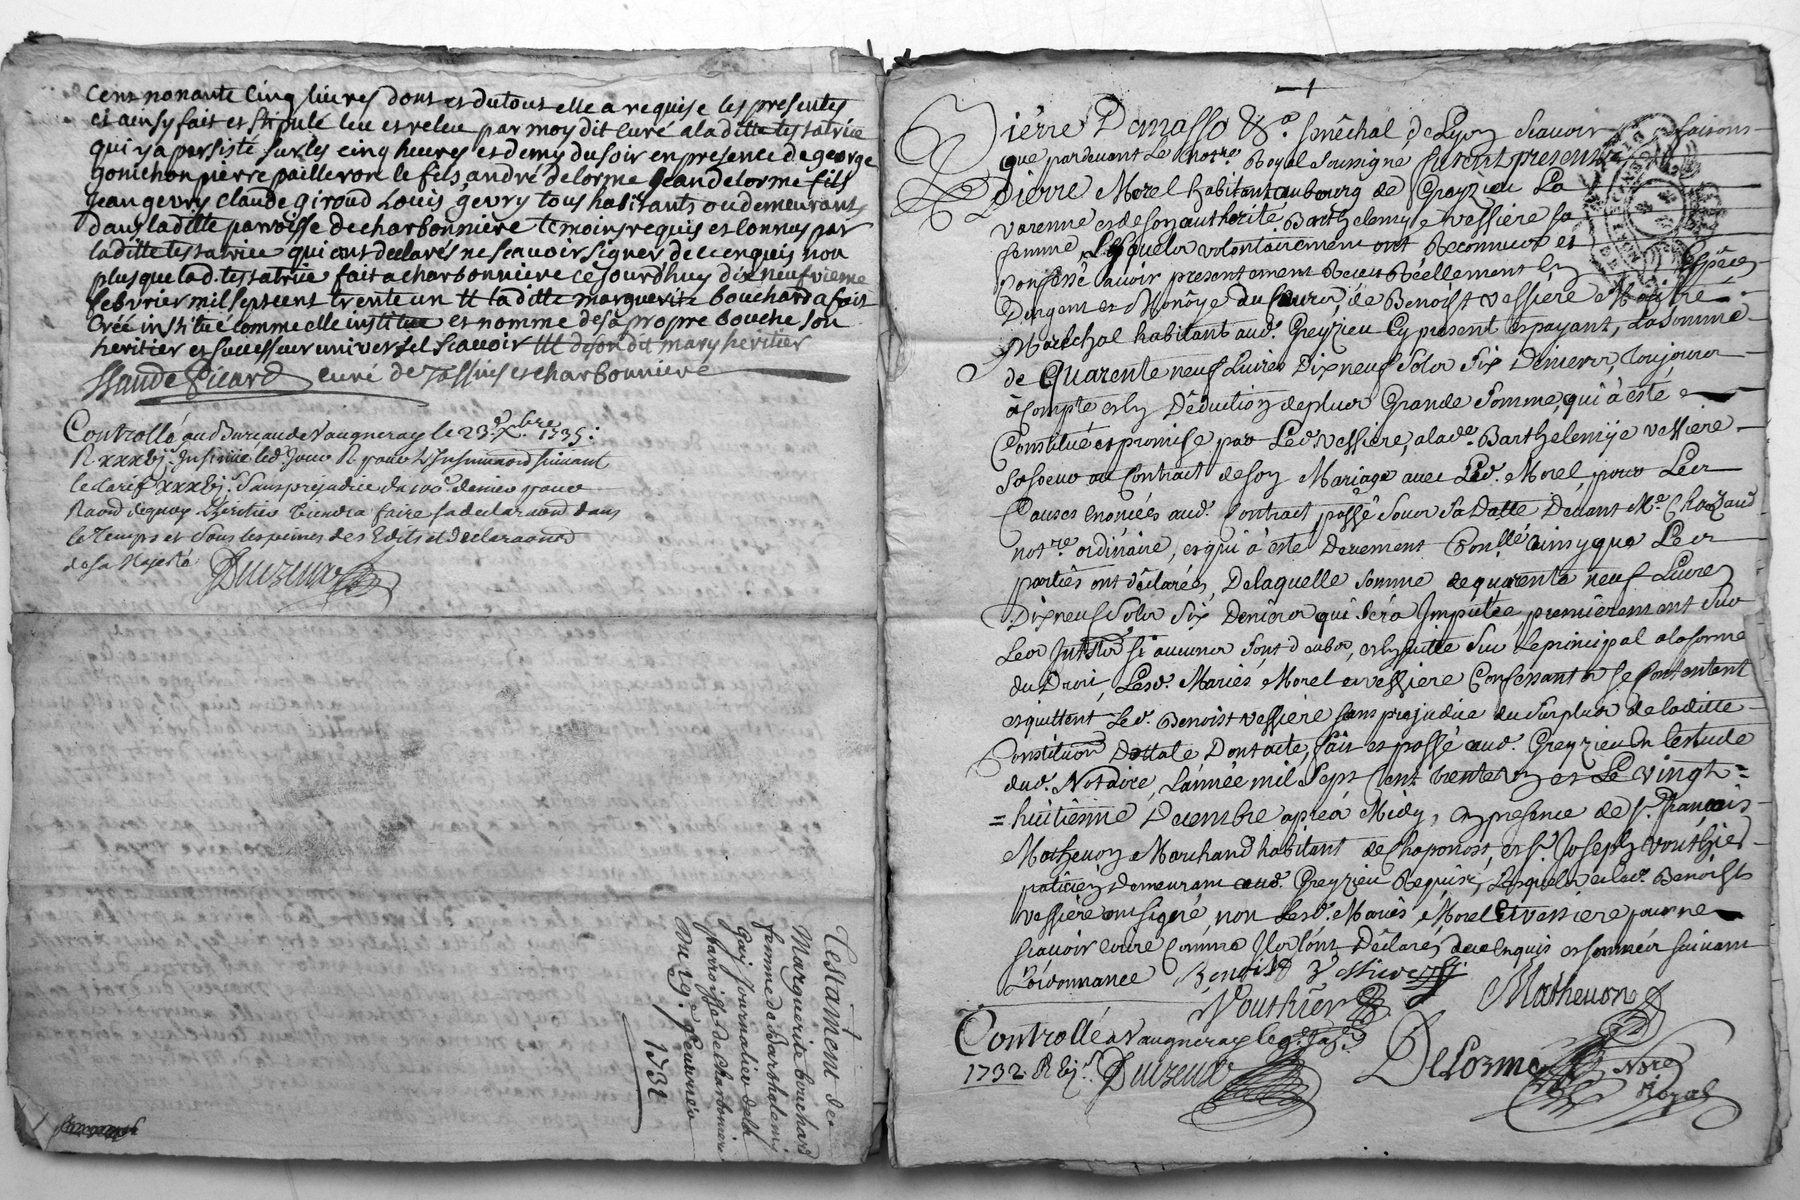 cent nonante cinq livres dont et dutout elle a requise les presentes
et ainsy fait et stipulé leu et releu par moy dit curé a laditte testatrice
qui y a persisté sur les cinq heures et demy du soir en presence de george
gouichon pierre pailleron le fils, andré delorme jean delorme fils
jean gevry claude giroud Louis gevry tous habitants ou demeurants
dans laditte parroisse de charbonniere temoins requis et connus par
laditte testatrice qui ont declarés ne scavoir signer de ce enquis non
plus que lad. testatrice fait a charbonniere ce jourdhuy dix neufvieme
febvrier mil sept cent trente un laditte marguerite bouchard a fait
créé institué comme elle institue et nomme de sa propre bouche son
heritier et successeur universel scavoir dit mary heritier
Claude Picard curé de Tassins et charbonniere
Controllé au Bureau de Vaugneray le 23e Xbre 1735:
R xxxvj s. Insinué led. Jour R pour L'Insinuaōn suivant
le tarif xxxvj s. Sans prejudice du 100e denier pour
Raōn de quoy L'heritier tiendra faire sa declaraōn dans
le Temps et sous les peines des Edits et declaraōns
de sa Majesté Duizeux
Testament de
Marguerite bouchard
femme de Barthelemy
Gay Journalier de la
parroisse de Charbonniere
Du 19e. feuvrier
1731
Pierre Damasso &a. senéchal de Lyon Scavoir faisons
que pardevant Le notre. Royal soussigné furent presents
Pierre Morel habitant au bourg de Greyzieu La
varenne et de son authorité Barthelemye vessiere sa
femme, Lesquels volontairement ont Reconneus et
Confessé avoir presentement Receu Réellement En Espéces
D'argent et Monoye du Cours, de Benoist vessiere Maitre
Maréchal habitant aud. Greyzieu Cy present et payant, La somme
de Quarente neuf Livres Dix neuf Sols Six Deniers, toujours
à compte et En Déduction de plus Grande Somme, qui à êté
Constituée et promise par Led. vessiere, a lad. Barthelemye vessiere
sa soeur au Contract de son Mariage avec Led. Morel, pour Les
Causes Enoncées aud. Contract passé sous sa Datte Devant Me. Chazaud
notre. ordinaire, et qui à êté Deuement Conllé ainsy que Les
parties ont déclarées, De laquelle somme de quarente neuf Livres
Dix neuf Sols Six Deniers qui sera Imputée, premierement sur
Les Intérests si aucuns sont deubs, et Ensuitte Sur Le principal a la forme
du Droit, Lesd. Mariés Morel et vessiere Confessant se Contentent
et quittent Led. Benoist vessiere sans prejudice du surplus de laditte
Constitution Dottale, Dont acte, fait et passé aud. Greyzieu En L'estude
dud. Notaire, L'année mil Sept Cent trente un et Le vingt=
=huitiême Decembre apres Midy, En presence de sr. François
Mathevon Marchand habitant de Chaponost, et sr. Joseph Vouthier
paticien demeurant aud. Greyzieu Requis, Lesquels et led. Benoist
vessiere ont signé, non Lesd. Mariés Morel et vessiere pour ne
scavoir Ecrire comme Ils ont Déclarés, de ce enquis et sommés suivant
L'ordonnance
Benoist Vessiere
Vouthier Mathevon
Controllé a Vaugneray le 9e. Janer.
1732. R vj s. Duizeux
Delorme Nore
Royal